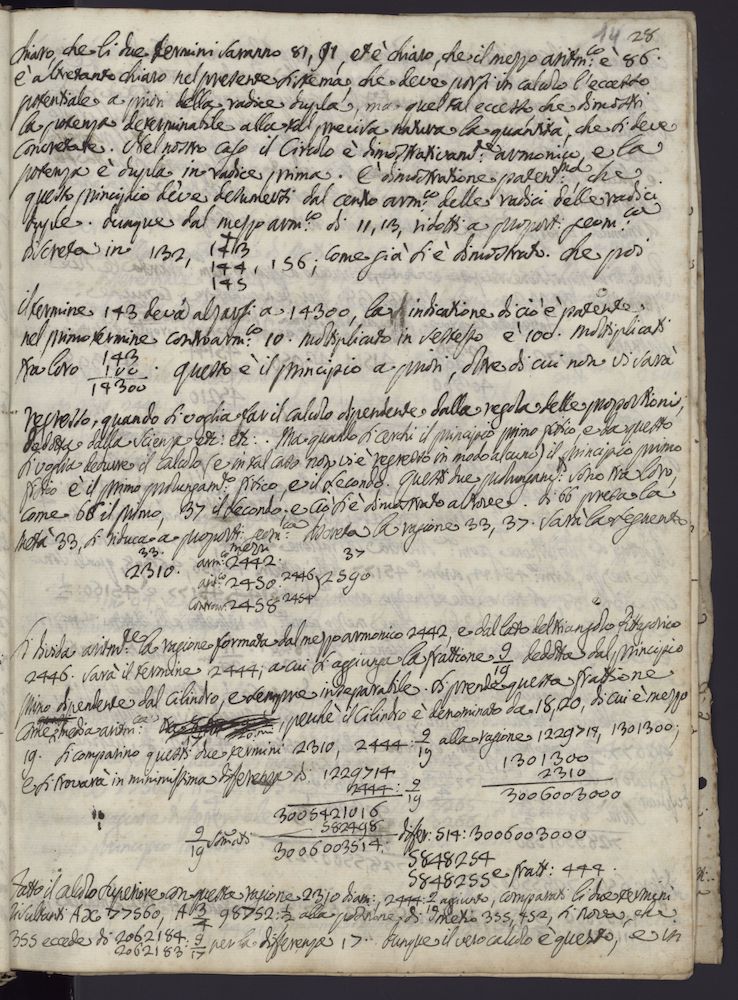 14 28
chiaro, che li due termini saranno 81, 91, et è chiaro, che il mezzo aritm:co è 86.
è altretanto chiaro nel presente sistema, che deve porsi in calcolo l'eccesso
potentiale a priori della radice dupla, ma quel tal eccesso che dimostri
la potenza determinabile alla tal precisa natura la quantità, che si deve
concretare. Nel nostro caso il Circolo è dimostrativam:te armonico, e la
potenza è dupla in radice prima. È dimostratione patent:ma che
questo principio deve desumersi dal centro arm:co delle radici delle radici
duple. dunque dal mezzo arm:co di 11, 13, ridotti a proport: geom:ca
discreta in 132, 143 144 145, 156; come già si è dimostrato. che poi
il termine 143 deva alzarsi a 14300, la indicatione di ciò è patente
nel primo termine controarm:co 10. moltiplicato in se stesso è 100. moltiplicati
tra loro 143 100 14300. questo è il principio a priori, oltre di cui non vi sarà
regresso, quando si voglia far il calcolo dipendente dalla regola delle proporzioni,
dedotta dalla scienza etc: etc: . Ma quando si cerchi il principio primo fisico, e da questo
si voglia dedurre il calcolo (e in tal caso non vi è regresso in modo alcuno) il principio primo
fisico è il primo prolungam:to fisico, e il secondo. questi due prolungam:ti sono tra loro,
come 66 il primo, 37 il secondo; e ciò si è dimostrato altrove. di 66 presa la
metà 33, si riduca a proport: geom:ca discreta la ragione 33, 37. sarà la seguente
33. mezzi 37
2310. arm:co 2442. 2590
arit:co 2450. 2446
controar: 2458 2454
Si divida aritm:te la ragione formata dal mezzo armonico 2442, e dal lato del triangolo Pitagorico
2446. sarà il termine 2444; a cui si aggiunga la frattione 9/19 dedotta dal principio
primo dipendente dal Cilindro, e sempre inseparabile. si prende questa frattione
come media aritm:ca perché il Cilindro è denominato da 18, 20, di cui è mezzo
19. si comparino questi due termini 2310, 2444: 9/19 alla ragione 1229714, 1301300;
e si trovarà in minimissima differenza di: 1229714 1301300
2444: 9/19 2310
3005421016 3006003000
9/19 sommati 582498 differ: 514: 3006003000
3006003514. 5848254
5848255 e fratt: 444.
Fatto il calcolo superiore con questa ragione 2310 diam:, 2444: 9/19 aggiunto, comparati li due termini
risultanti AX 77560, A 3/4 98752: 1/2 alla portione di metro 355, 452, si trova, che
355 eccede di 2062184: 9/17 per la differenza 17. dunque il vero calcolo è questo, e in
2062183